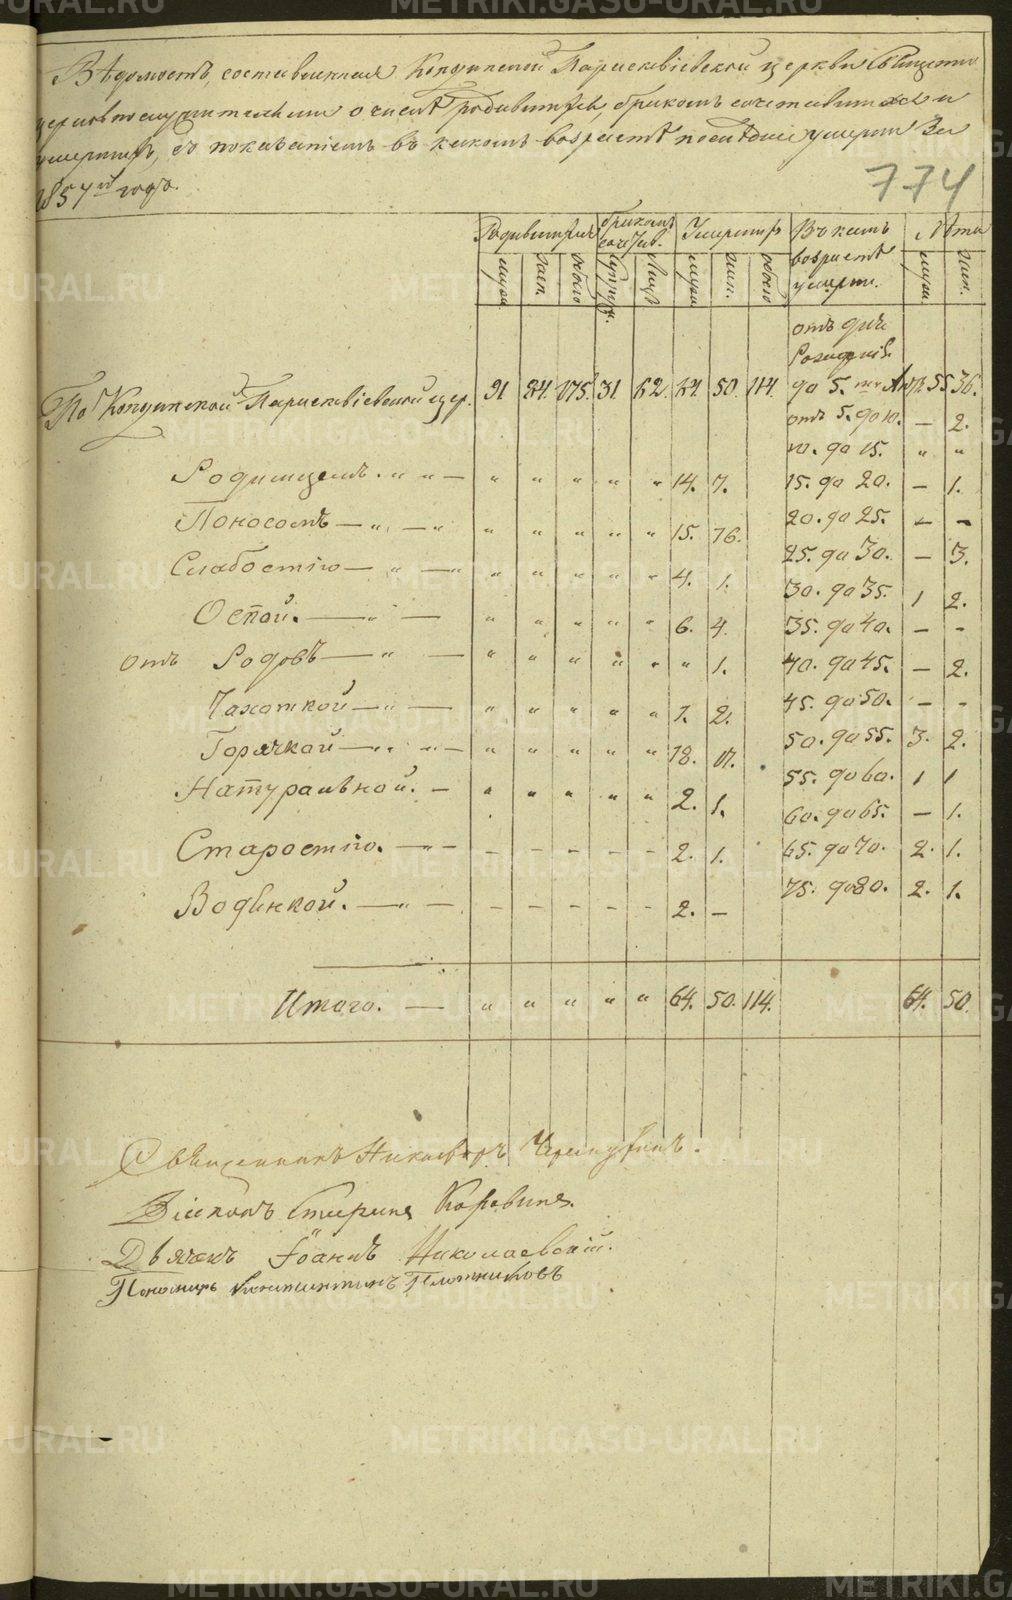 Вѣдомость, составленная Кондинской Параскевіевской церкви Священно
церковнослужителями о числѣ родившихся, бракомъ сочетавшихся и
умершихъ, съ показаніемъ въ какомъ возрастѣ послѣдніе умерли За
1857й годъ.
774
Родившихся бракомъ сочетав. Умершихъ Въ какомъ возрастѣ умерли. Лѣта
муж. жен. обоего супруж. лицъ муж. жен. обоего муж. жен.
отъ дня Рожденія
По Кондинской Параскевіевской цер. 91 84. 175. 31. 62. 64. 50. 114. до 5. ти Лѣтъ 55 36.
отъ 5. до 10. — 2.
10. до 15. „ „
Родимцемъ. „ „ — „ „ „ „ „ 14. 7. 15. до 20. — 1.
Поносомъ — „ — „ „ „ „ „ „ 15. 16. 20. до 25. — —
25. до 30. — 3.
Слабостію — „ — „ „ „ „ „ „ 4. 1. 30. до 35. 1 2.
Оспой. — „ — „ „ „ „ „ 6. 4. 35. до 40. — -
отъ Родовъ — „ — „ „ „ „ „ „ 1. 40. до 45. — 2.
Чахоткой — „ — „ „ „ „ „ 1. 2. 45. до 50. - -
Горячкой — „ „ — „ „ „ „ „ 18. 17. 50. до 55. 3. 2.
Натуральной. — „ „ „ „ „ 2. 1. 55. до 60. 1 1
60. до 65. — 1.
Старостію. — „ — - - - - - 2. 1. 65. до 70. 2. 1.
Водянкой. — „ — - - - - - 2. — 75. до 80. 2. 1.
Итого. — „ „ „ „ „ 64. 50. 114. 64. 50.
Священникъ Никаноръ
Діаконъ Карпинъ
Дьячекъ Іоаннъ Николаевскій.
Пономарь Константинъ Плотниковъ
METRIKI.GASO-URAL.RU